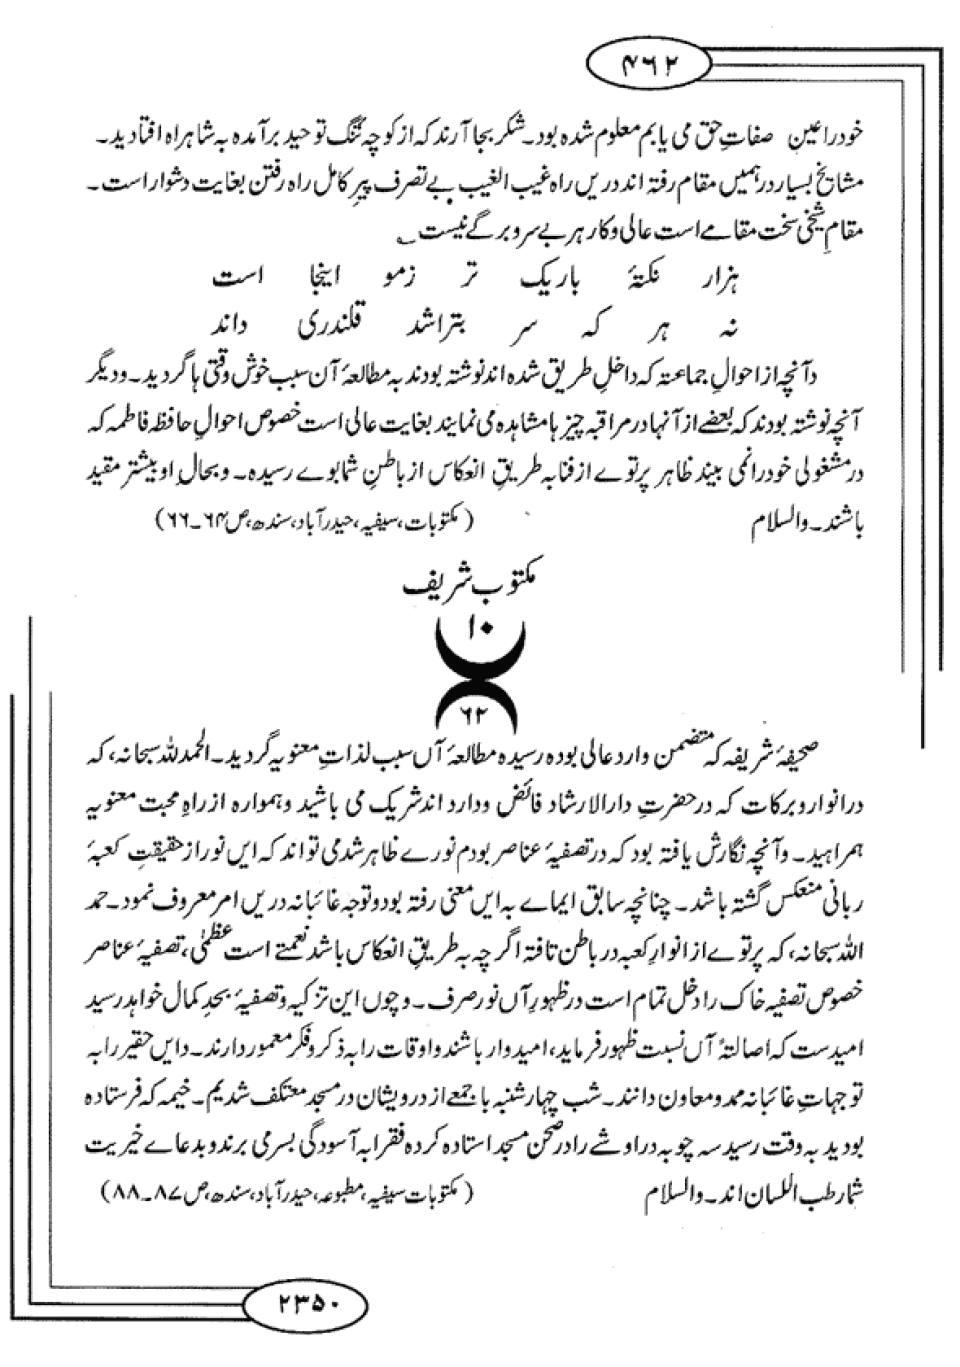 ۴۶۲
خود را عین صفاتِ حق می یابم معلوم شده بود۔ شکر بجا آرند که از کوچه تنگ توحید برآمده به شاهراه افتادید۔
مشایخ بسیار در همیں مقام رفته اند دریں راه غیب الغیب بے تصرف پیرِ کامل راه رفتن بغایت دشوار است۔
مقامِ شیخی سخت مقامے است عالی و کار هر بے سر و برگے نیست؎
هزار نکتۂ باریک تر زمو اینجا است
نہ هر کہ سر بتراشد قلندری داند
دآنچہ از احوالِ جماعتہ کہ داخلِ طریق شدہ اند نوشتہ بودند بہ مطالعۂ آن سبب خوش وقتی ہا گردید۔ ودیگر
آنچہ نوشتہ بودند کہ بعضے از آنہا در مراقبہ چیزہا مشاہدہ می نمایند بغایت عالی است خصوص احوالِ حافظہ فاطمہ کہ
در مشغولی خود را نمی بیند ظاہر پرتوے از فنا بہ طریقِ انعکاس از باطنِ شما بوے رسیدہ۔ و بحالِ او بیشتر مقید
باشند۔ والسلام (مکتوبات، سیفیہ، حیدرآباد، سندھ، ص ۶۴۔۶۶)
مکتوب شریف
۱۰
۶۲
صحیفۂ شریفہ کہ متضمن وارد عالی بودہ رسیدہ مطالعۂ آں سبب لذاتِ معنویہ گردید۔ الحمد للہ سبحانہ، کہ
در انوار و برکات کہ در حضرتِ دارالارشاد فائض ودارد اند شریک می باشید و ہموارہ از راہِ محبت معنویہ
ہمراہید۔ وآنچہ نگارش یافتہ بود کہ در تصفیۂ عناصر بودم نورے ظاہر شد می تواند کہ ایں نور از حقیقتِ کعبۂ
ربانی منعکس گشتہ باشد۔ چنانچہ سابق ایماے بہ ایں معنی رفتہ بود و توجہ غائبانہ دریں امر معروف نمود۔ حمد
اللہ سبحانہ، کہ پرتوے از انوارِ کعبہ در باطن تافتہ اگر چہ بہ طریقِ انعکاس باشد نعمتے است عظمیٰ، تصفیۂ عناصر
خصوص تصفیہ خاک را دخل تمام است در ظہورِ آں نور صرف۔ و چوں این تزکیہ و تصفیہ بحدِ کمال خواہد رسید
امیدست کہ اصالتۂ آں نسبت ظہور فرماید، امیدوار باشند و اوقات را بہ ذکر و فکر معمور دارند۔ دایں حقیر را بہ
توجہاتِ غائبانہ ممد و معاون دانند۔ شب چہارشنبہ با جمعے از درویشان در مسجد معتکف شدیم۔ خیمہ کہ فرستادہ
بودید بہ وقت رسید سہ چوبہ دراوشے را در صحنِ مسجد استادہ کردہ فقرا بہ آسودگی بسر می برند و بدعاے خیریت
شما رطب اللسان اند۔ والسلام (مکتوبات سیفیہ، مطبوعہ، حیدرآباد، سندھ، ص ۸۷۔۸۸)
۲۳۵۰